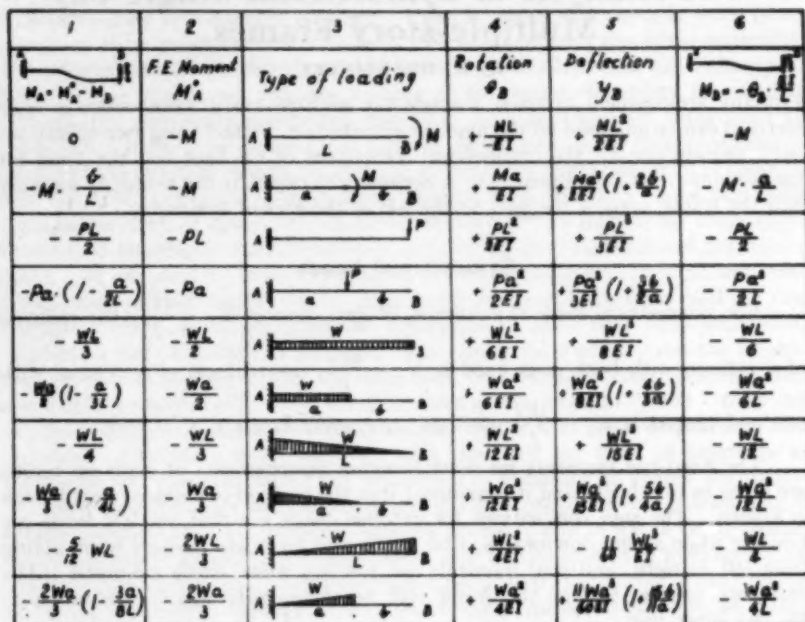 Multiple-story Frames
1 2 3 4 5 6
A B M_A = M'_A - M_B F.E. Moment M'_A Type of loading Rotation θ_B Deflection y_B M_B = -θ_B · EI/L
0 - M A L B M + ML/EI + ML²/2EI - M
- M · b/L - M A a M b B + Ma/EI + Ma²/2EI (1 + 2b/a) - M · a/L
- PL/2 - PL A P + PL²/2EI + PL³/3EI - PL/2
- Pa · (1 - a/2L) - Pa A a P b B + Pa²/2EI + Pa³/3EI (1 + 3b/2a) - Pa²/2L
- WL/3 - WL/2 A W B + WL²/6EI + WL³/8EI - WL/6
- Wa/2 (1 - a/3L) - Wa/2 A W a b B + Wa²/6EI + Wa³/8EI (1 + 4b/3a) - Wa²/6L
- WL/4 - WL/3 A W L B + WL²/12EI + WL³/15EI - WL/12
- Wa/3 (1 - a/4L) - Wa/3 A W a b B + Wa²/12EI + Wa³/15EI (1 + 5b/4a) - Wa²/12L
- 5/12 WL - 2WL/3 A W L B + WL²/4EI - 11/60 WL³/EI - WL/4
- 2Wa/3 (1 - 3a/8L) - 2Wa/3 A W a b B + Wa²/4EI + 11Wa³/60EI (1 + 15b/11a) - Wa²/4L